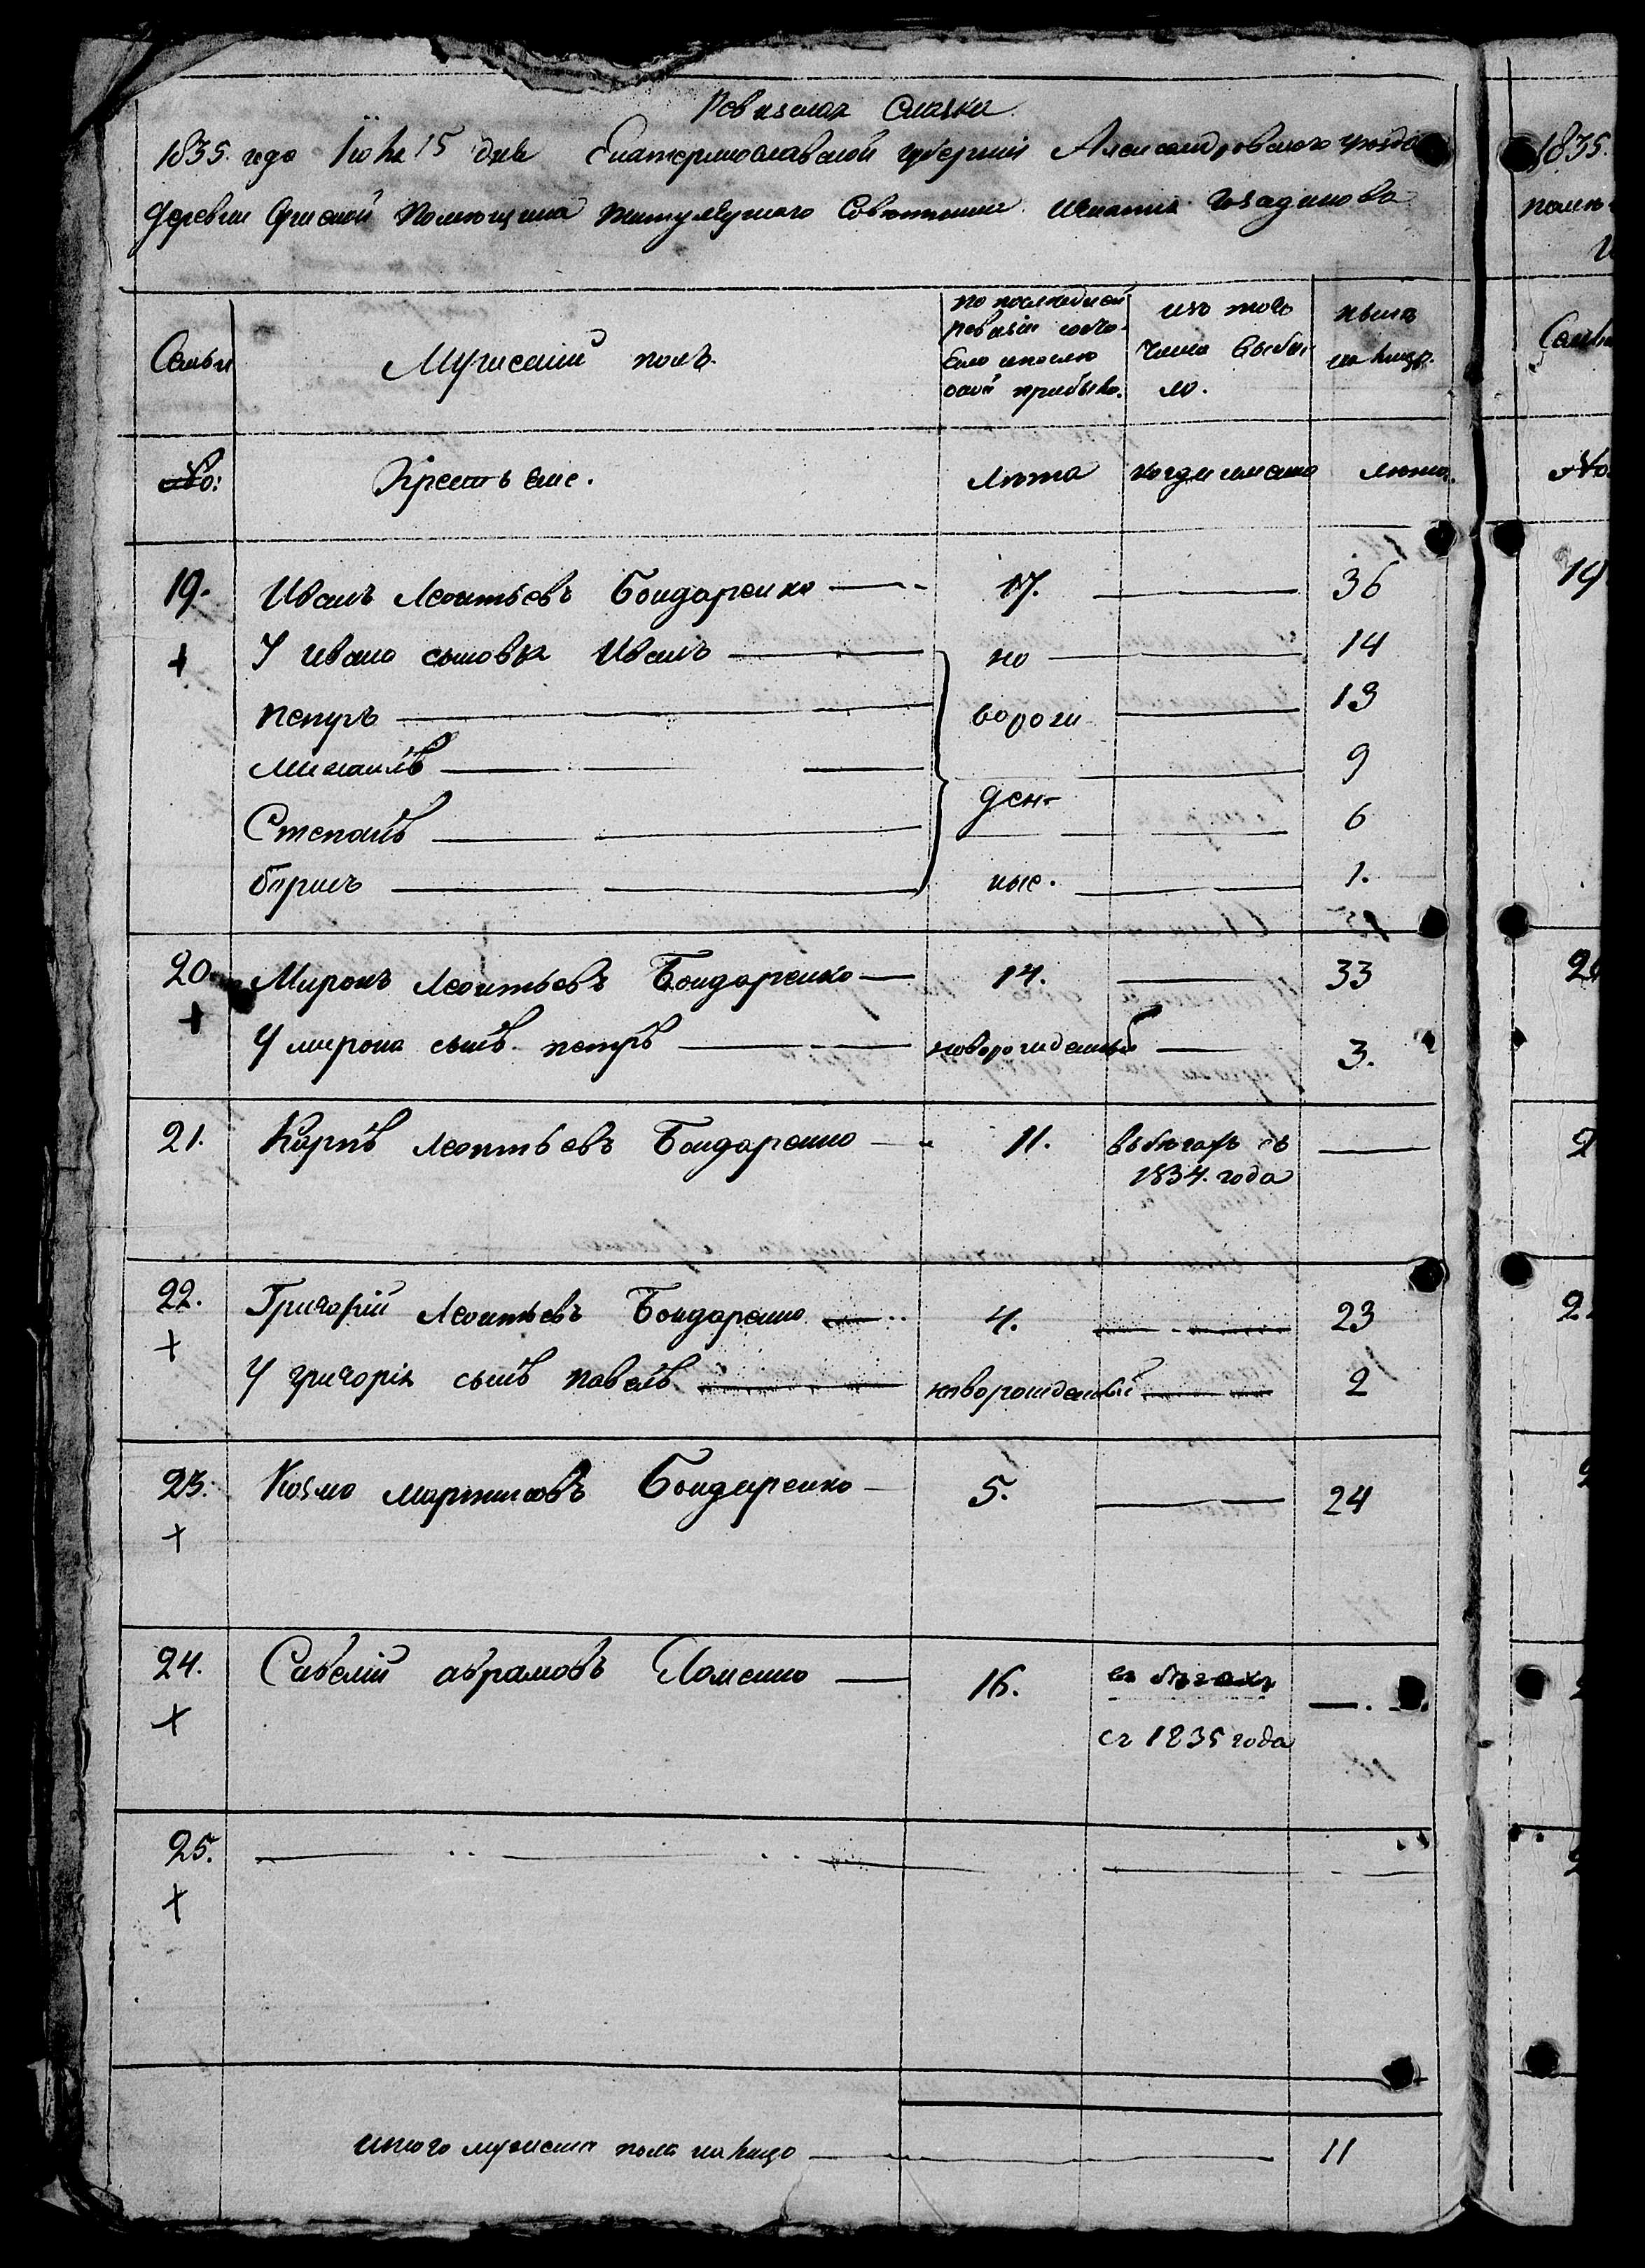 Ревизская Сказка
1835. года Июня 15 дня Екатеринославской губернии Александровского уезда
деревни помещика титулярнаго Советника Игнатия
Семьи
Мужеский полъ.
по последней ревизии состояло и после оной прибыло.
изъ того числа выбыло.
ныне на лицо.
№:
Крестьяне.
Лета
когда именно
лета.
19. Иванъ Леонтьевъ Бондаренко 17. 36
У ивана сыновья Иванъ но 14
петръ ворож 13
михаилъ 9
Степанъ ден- 6
борисъ ные. 1.
20. Миронъ Леонтьевъ Бондаренко 14. 33
У мирона сынъ петръ новорожденный 3.
21. Карпъ Леонтьевъ Бондаренко 11. въ бегахъ съ
1834. года
22. Григорій Леонтьевъ Бондаренко 4. 23
У григорія сынъ павелъ новорожденный 2
23. Козма мартиновъ Бондаренко 5. 24
24. Савелій аврамовъ 16. въ бегахъ
съ 1835 года
25.
итого мужеска пола на лицо 11
1835.
поме
Семьи
№
19
20
2
22
2
2
2